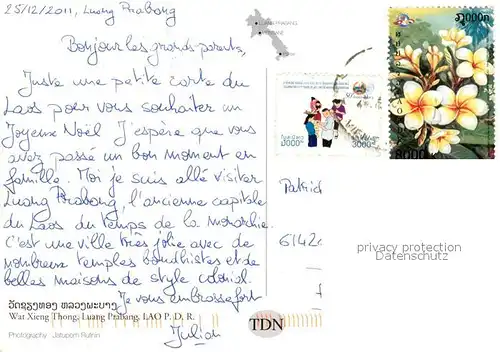 25/12/2011, Luang Prabong
Bonjour les grands-parents,
Juste une petite carte du
Laos pour vous souhaiter un
Joyeux Noël J'espère que vous
avez passé un bon moment en
famille. Moi je suis allé visiter
Luang Prabong, l'ancienne capitale
du Laos du temps de la monarchie.
C'est une ville très jolie avec de
nombreux temples boudhistes et de
belles maisons de style colonial.
Je vous embrasse fort
Julian
ວັດຊຽງທອງ ຫລວງພະບາງ
Wat Xieng Thong, Luang Prabang, LAO P. D. R.
Photography : Jatuporn Rutnin
TDN
LUANG PRABANG
3000
8000
Patric
6142
privacy protection
Datenschutz